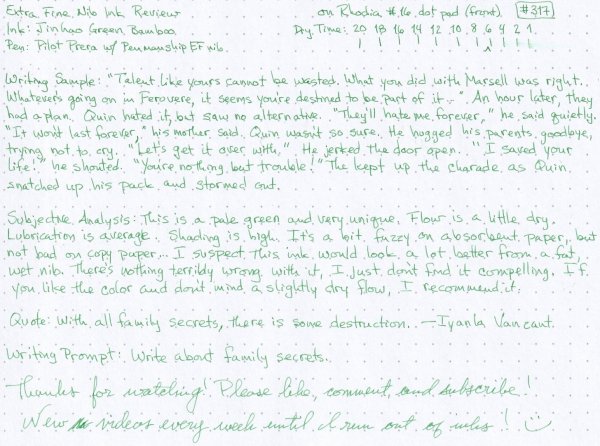 Extra Fine Nib Ink Review on Rhodia #16 dot pad (front) #317
Ink: Jinhao Green Bamboo Dry Time: 20 18 16 14 12 10 8 6 4 2 1
Pen: Pilot Prera w/ Penmanship EF nib.
Writing Sample: "Talent like yours cannot be wasted. What you did with Marsell was right.
Whatever's going on in Ferovere, it seems you're destined to be part of it..." An hour later, they
had a plan. Quin hated it, but saw no alternative. "They'll hate me forever," he said quietly.
"It won't last forever," his mother said. Quin wasn't so sure. He hugged his parents goodbye,
trying not to cry. "Let's get it over with." He jerked the door open. "I saved your
life!" he shouted. "You're nothing but trouble!" The kept up the charade as Quin
snatched up his pack and stormed out.
Subjective Analysis: This is a pale green and very unique. Flow is a little dry.
Lubrication is average. Shading is high. It's a bit fuzzy on absorbent paper, but
not bad on copy paper... I suspect this ink would look a lot better from a fat,
wet nib. There's nothing terribly wrong with it, I just don't find it compelling. If
you like the color and don't mind a slightly dry flow, I recommend it.
Quote: With all family secrets, there is some destruction. —Iyanla Vanzant
Writing Prompt: Write about family secrets.
Thanks for watching! Please like, comment, and subscribe!
New videos every week until I run out of inks! :)